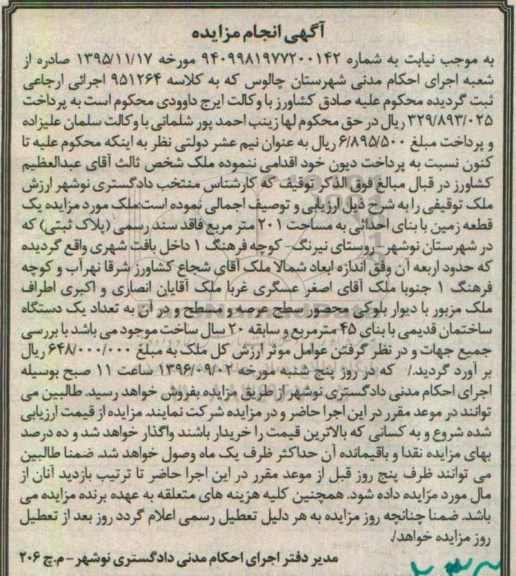 آگهی انجام مزایده
به موجب نیابت به شماره ۹۴۰۹۹۸۱۹۷۷۲۰۰۱۴۲ مورخه ۱۳۹۵/۱۱/۱۷ صادره از
شعبه اجرای احکام مدنی شهرستان چالوس که به کلاسه ۹۵۱۲۶۴ اجرائی ارجاعی
ثبت گردیده محکوم علیه صادق کشاورز با وکالت ایرج داوودی محکوم است به پرداخت
۳۲۹/۸۹۳/۰۲۵ ریال در حق محکوم لها زینب احمد پور شلمانی با وکالت سلمان علیزاده
و پرداخت مبلغ ۶/۸۹۵/۵۰۰ ریال به عنوان نیم عشر دولتی نظر به اینکه محکوم علیه تا
کنون نسبت به پرداخت دیون خود اقدامی ننموده ملک شخص ثالث آقای عبدالعظیم
کشاورز در قبال مبالغ فوق الذکر توقیف که کارشناس منتخب دادگستری نوشهر ارزش
ملک توقیفی را به شرح ذیل ارزیابی و توصیف اجمالی نموده است ملک مورد مزایده یک
قطعه زمین با بنای احداثی به مساحت ۲۰۱ متر مربع فاقد سند رسمی (پلاک ثبتی) که
در شهرستان نوشهر - روستای نیرنگ - کوچه فرهنگ ۱ داخل بافت شهری واقع گردیده
که حدود اربعه آن وفق اندازه ابعاد شمالا ملک آقای شجاع کشاورز شرقا نهرآب و کوچه
فرهنگ ۱ جنوبا ملک آقای اصغر عسگری غربا ملک آقایان انصاری و اکبری اطراف
ملک مزبور با دیوار بلوکی محصور سطح عرصه مسطح و در آن به تعداد یک دستگاه
ساختمان قدیمی با بنای ۴۵ مترمربع و سابقه ۲۰ سال ساخت موجود می باشد با بررسی
جمیع جهات و در نظر گرفتن عوامل موثر ارزش کل ملک به مبلغ ۶۴۸/۰۰۰/۰۰۰ ریال
بر آورد گردید./ که در روز پنج شنبه مورخه ۱۳۹۶/۰۹/۰۲ ساعت ۱۱ صبح بوسیله
اجرای احکام مدنی دادگستری نوشهر از طریق مزایده بفروش خواهد رسید. طالبین می
توانند در موعد مقرر در این اجرا حاضر و در مزایده شرکت نمایند. مزایده از قیمت ارزیابی
شده شروع و به کسانی که بالاترین قیمت را خریدار باشند واگذار خواهد شد و ده درصد
بهای مزایده نقدا و باقیمانده آن حداکثر ظرف یک ماه وصول خواهد شد. ضمنا طالبین
می توانند ظرف پنج روز قبل از موعد مقرر در این اجرا حاضر تا ترتیب بازدید آنان از
مال مورد مزایده داده شود. همچنین کلیه هزینه های متعلقه به عهده برنده مزایده می
باشد. ضمنا چنانچه روز مزایده به هر دلیل تعطیل رسمی اعلام گردد روز بعد از تعطیل
روز مزایده خواهد/.
مدیر دفتر اجرای احکام مدنی دادگستری نوشهر - م.چ ۲۰۶